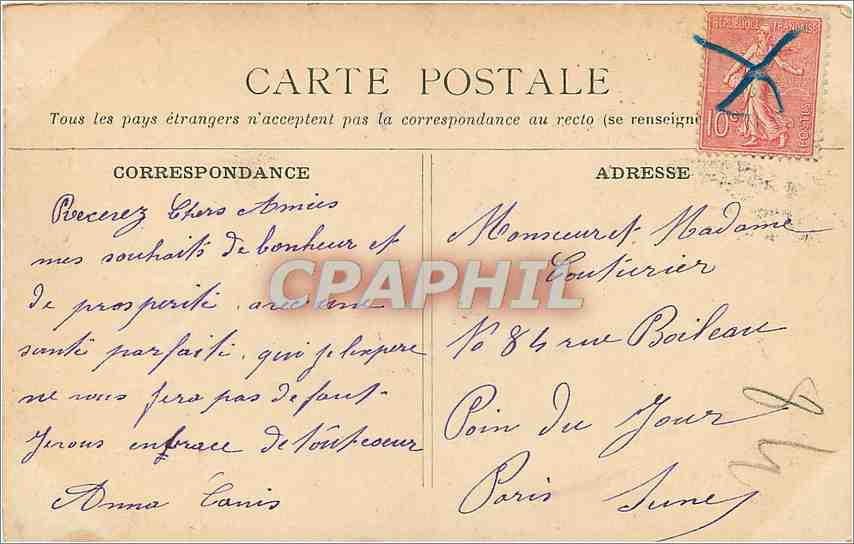 RÉPUBLIQUE FRANÇAISE
10c
POSTES
CARTE POSTALE
Tous les pays étrangers n'acceptent pas la correspondance au recto (se renseign
CORRESPONDANCE
Recevez Chers Amies
mes souhaits de bonheur et
de prosperité, avec une
santé parfaite, qui je l'espere
ne vous fera pas defaut
Je vous enbrace de tout coeur
Anna
ADRESSE
Monsieur et Madame
Couturier
No 84 rue Boileau
Poin du Jour
Paris
84
CPAPHIL